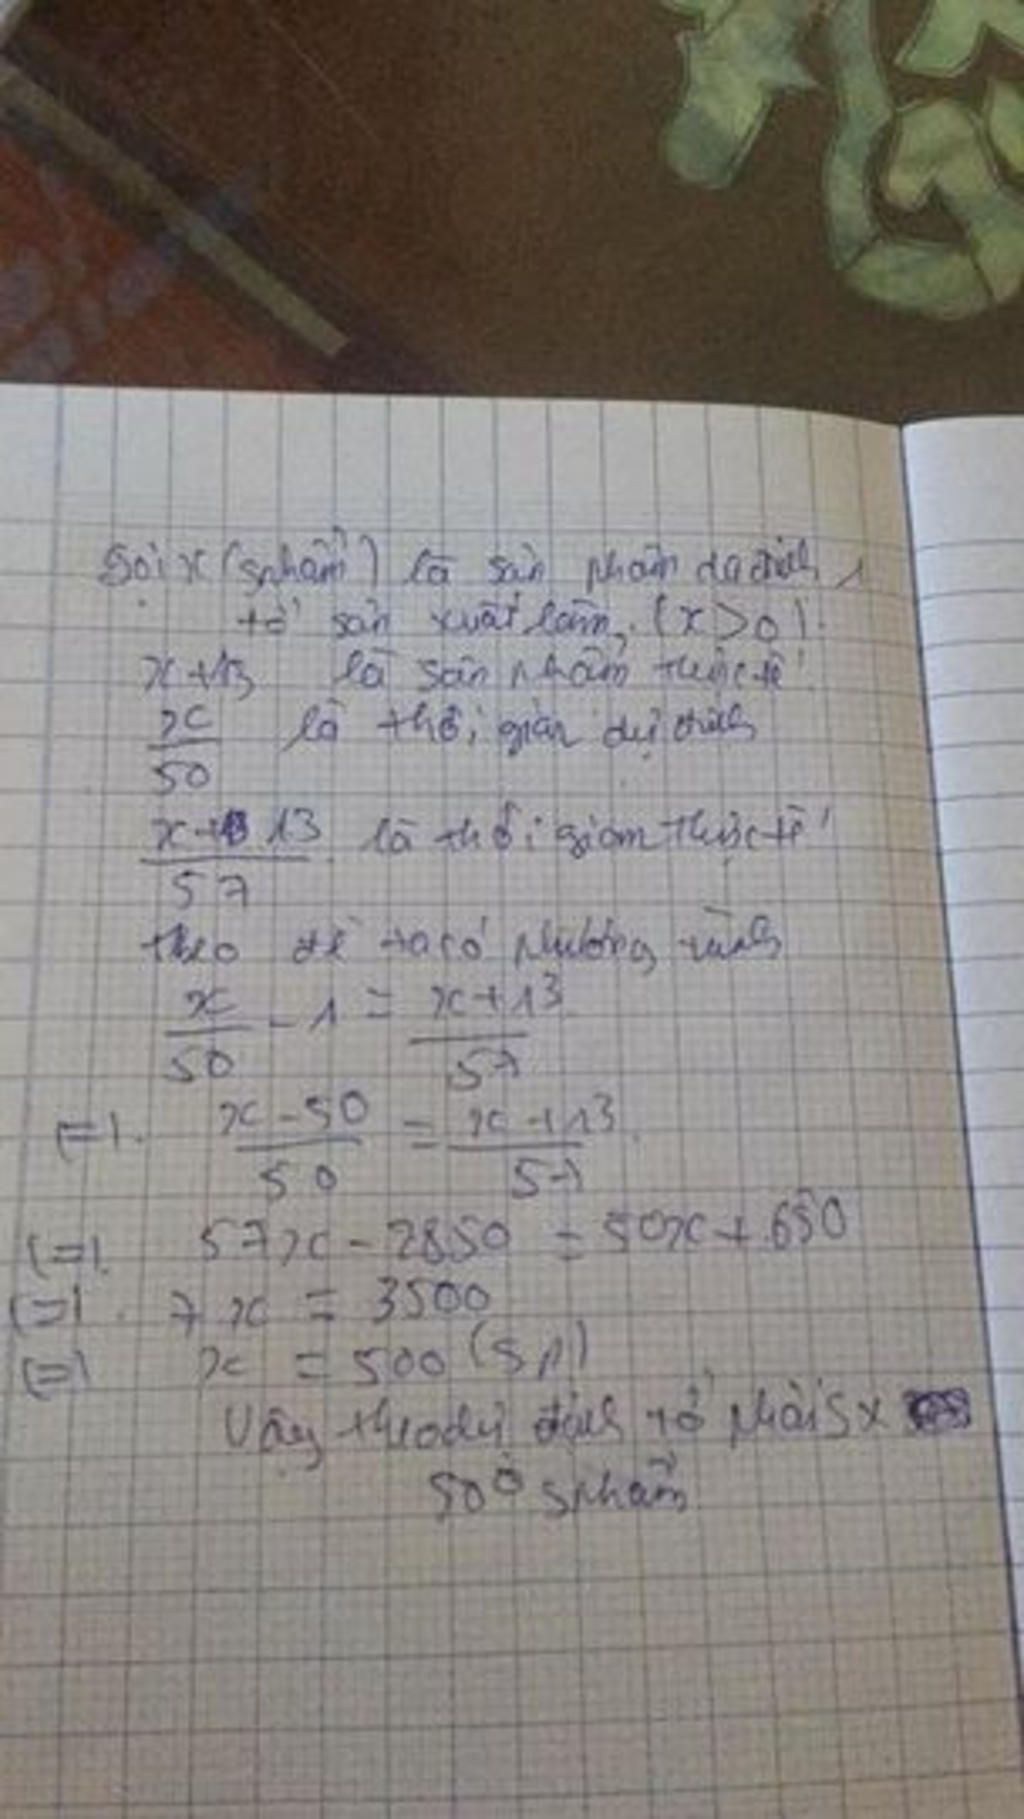 Gọi x (sphẩm) là sản phẩm dự định 1
tổ sản xuất làm. (x > 0).
x + 13 là sản phẩm thực tế
x/50 là thời gian dự định
x + 13/57 là thời gian thực tế
theo đề ta có phương trình
x/50 - 1 = x + 13/57
(=). x - 50/50 = x + 13/57
(=). 57x - 2850 = 50x + 650
(=). 7x = 3500
(=) x = 500 (sp)
Vậy theo dự định tổ phải sx
500 sphẩm